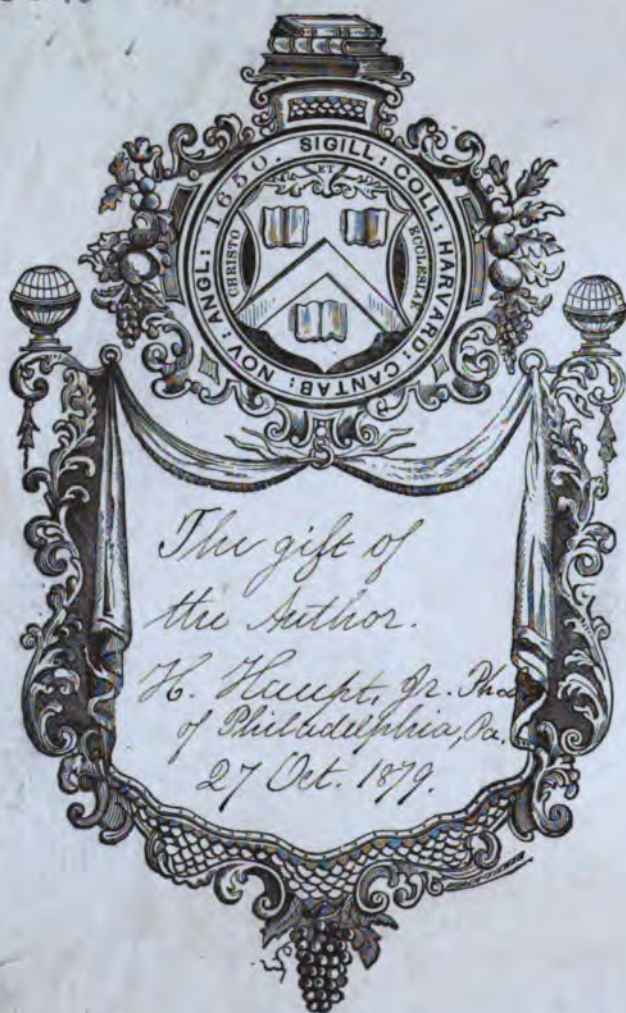 SIGILL: COLL: HARVARD: CANTAB: NOV: ANGL: 1650.
ET
CHRISTO
ECCLESIAE
The gift of
the Author.
H. Haupt, Jr.
of Philadelphia, Pa.
27 Oct. 1879.